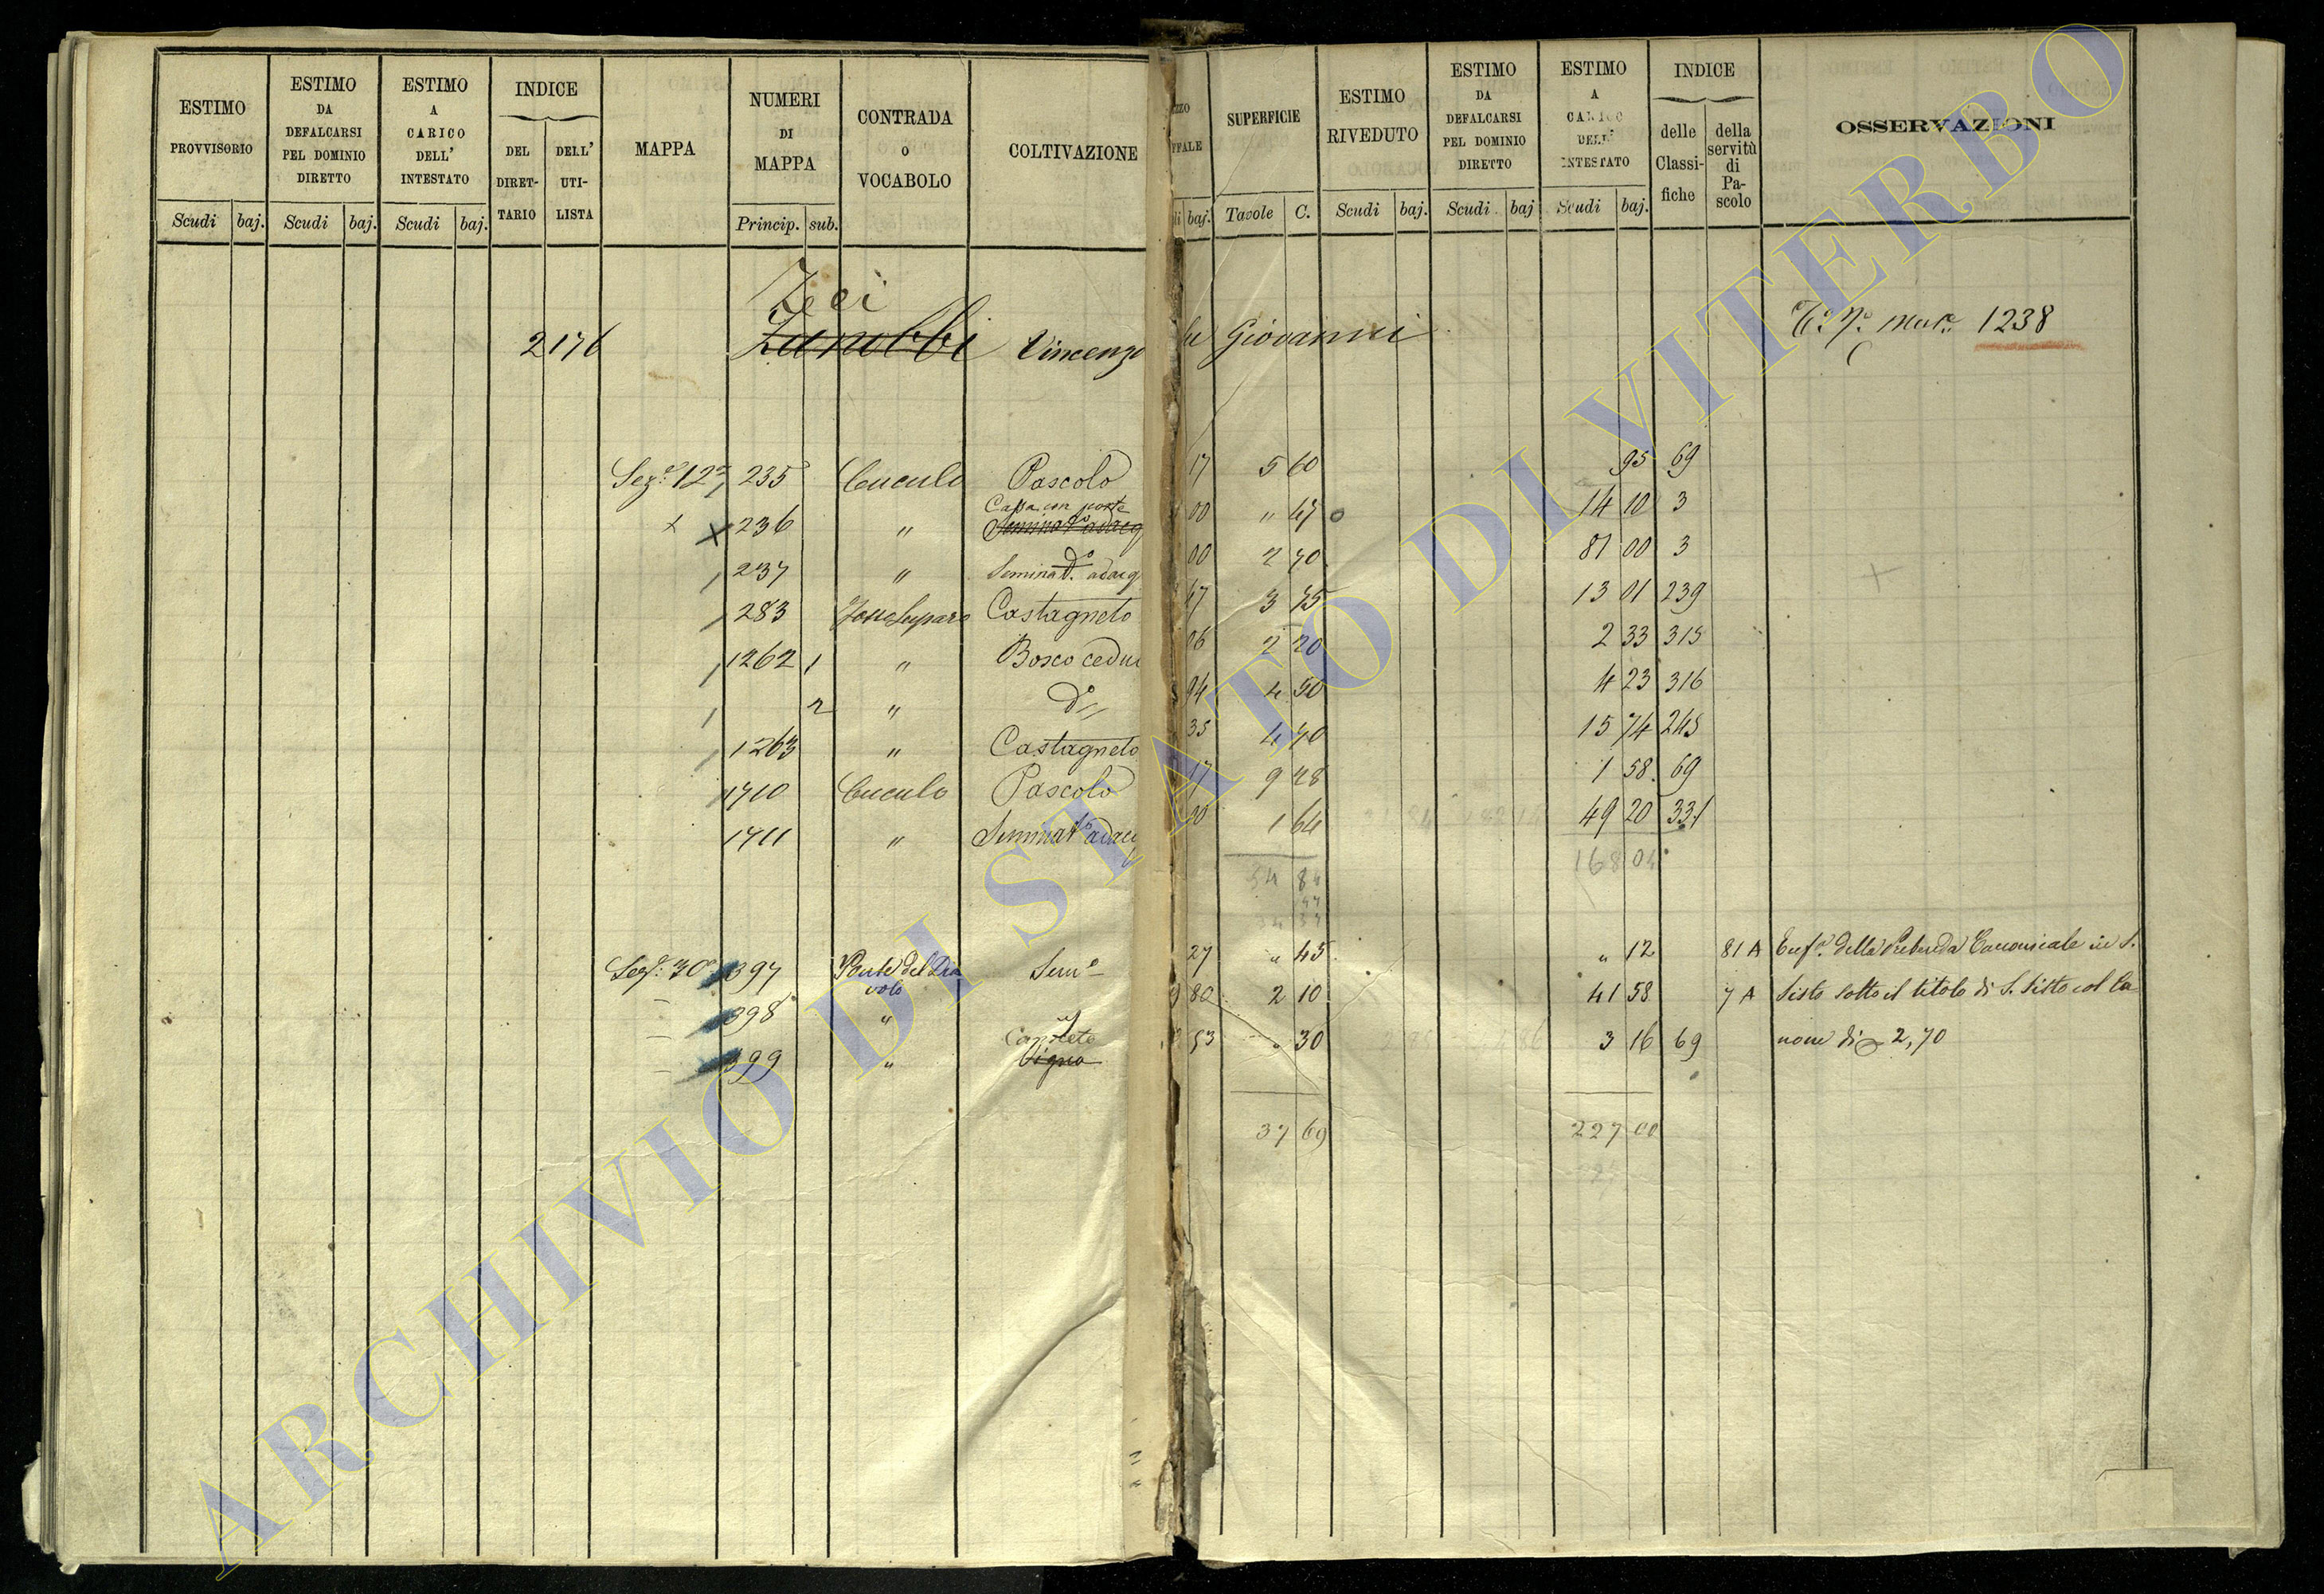 ESTIMO PROVVISORIO
ESTIMO DA DEFALCARSI PEL DOMINIO DIRETTO
ESTIMO A CARICO DELL' INTESTATO
INDICE
DEL DIRET- TARIO
DELL' UTI- LISTA
MAPPA
NUMERI DI MAPPA
CONTRADA O VOCABOLO
COLTIVAZIONE
ZZO
FFALE
SUPERFICIE
ESTIMO RIVEDUTO
ESTIMO DA DEFALCARSI PEL DOMINIO DIRETTO
ESTIMO A CARICO DELL' INTESTATO
INDICE
delle Classi- fiche
della servitù di Pa- scolo
OSSERVAZIONI
Scudi baj. Scudi baj. Scudi baj. Princip. sub. di baj. Tavole C. Scudi baj. Scudi baj Scudi baj.
Zeei
2176 Zanobbi Vincenzo fu Giovanni 1238
Sez.e 12a 235 Cuculo Pascolo 17 5 60 95 69
Cassa con ponte
x x 236 " Seminat.o adacq 00 " 47 14 10 3
d.o
237 " Seminat. adacq 00 2 70 81 00 3
283 Castagneto 47 3 75 13 01 239
1262 1 " Bosco cedu 06 2 20 2 33 315
2 " d.o 94 4 50 4 23 316
1263 " Castagneto 35 4 70 15 74 245
1710 Cuculo Pascolo 17 9 28 1 58 69
1711 " Seminat.o adacq 30 1 64 49 20 331
168 04
54 84
47
34 37
Sez.e 30a 397 Ponte del Dia volo Sem.o 27 " 45 " 12 81 A Enf.a della Prebenda Canonicale in S.
398 " 80 2 10 41 58 7 A Sisto sotto il titolo di S. Sisto col Ca
Canneto
399 " Vigna 53 " 30 3 16 69 none di 2,70
37 69 227 00
ARCHIVIO DI STATO DI VITERBO